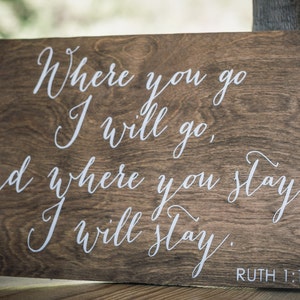 Where you go
I will go,
d where you stay
I will stay.
RUTH 1: